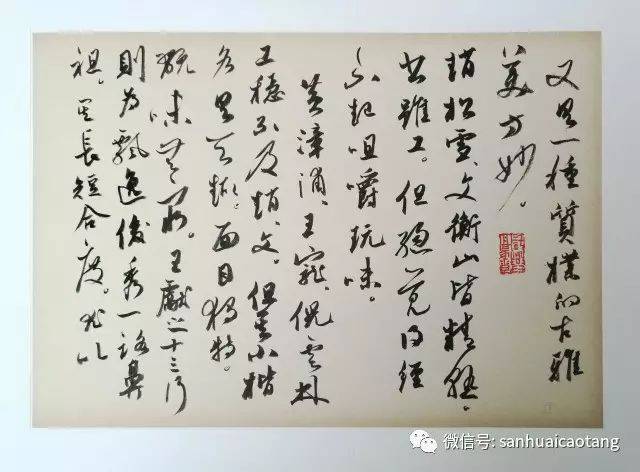 又是一種質樸的古雅
美方妙。
趙松雪、文衡山皆精熟。
書雖工。但總覺得經
不起咀嚼玩味。
黃漳浦、王寵、倪雲林
工穩不及趙、文。但其小楷
各具天趣。面目獨特。
味無窮。王獻之十三行
則為飄逸俊秀一路鼻
祖。其長短合度。尤以
微信号: sanhuaicaotang